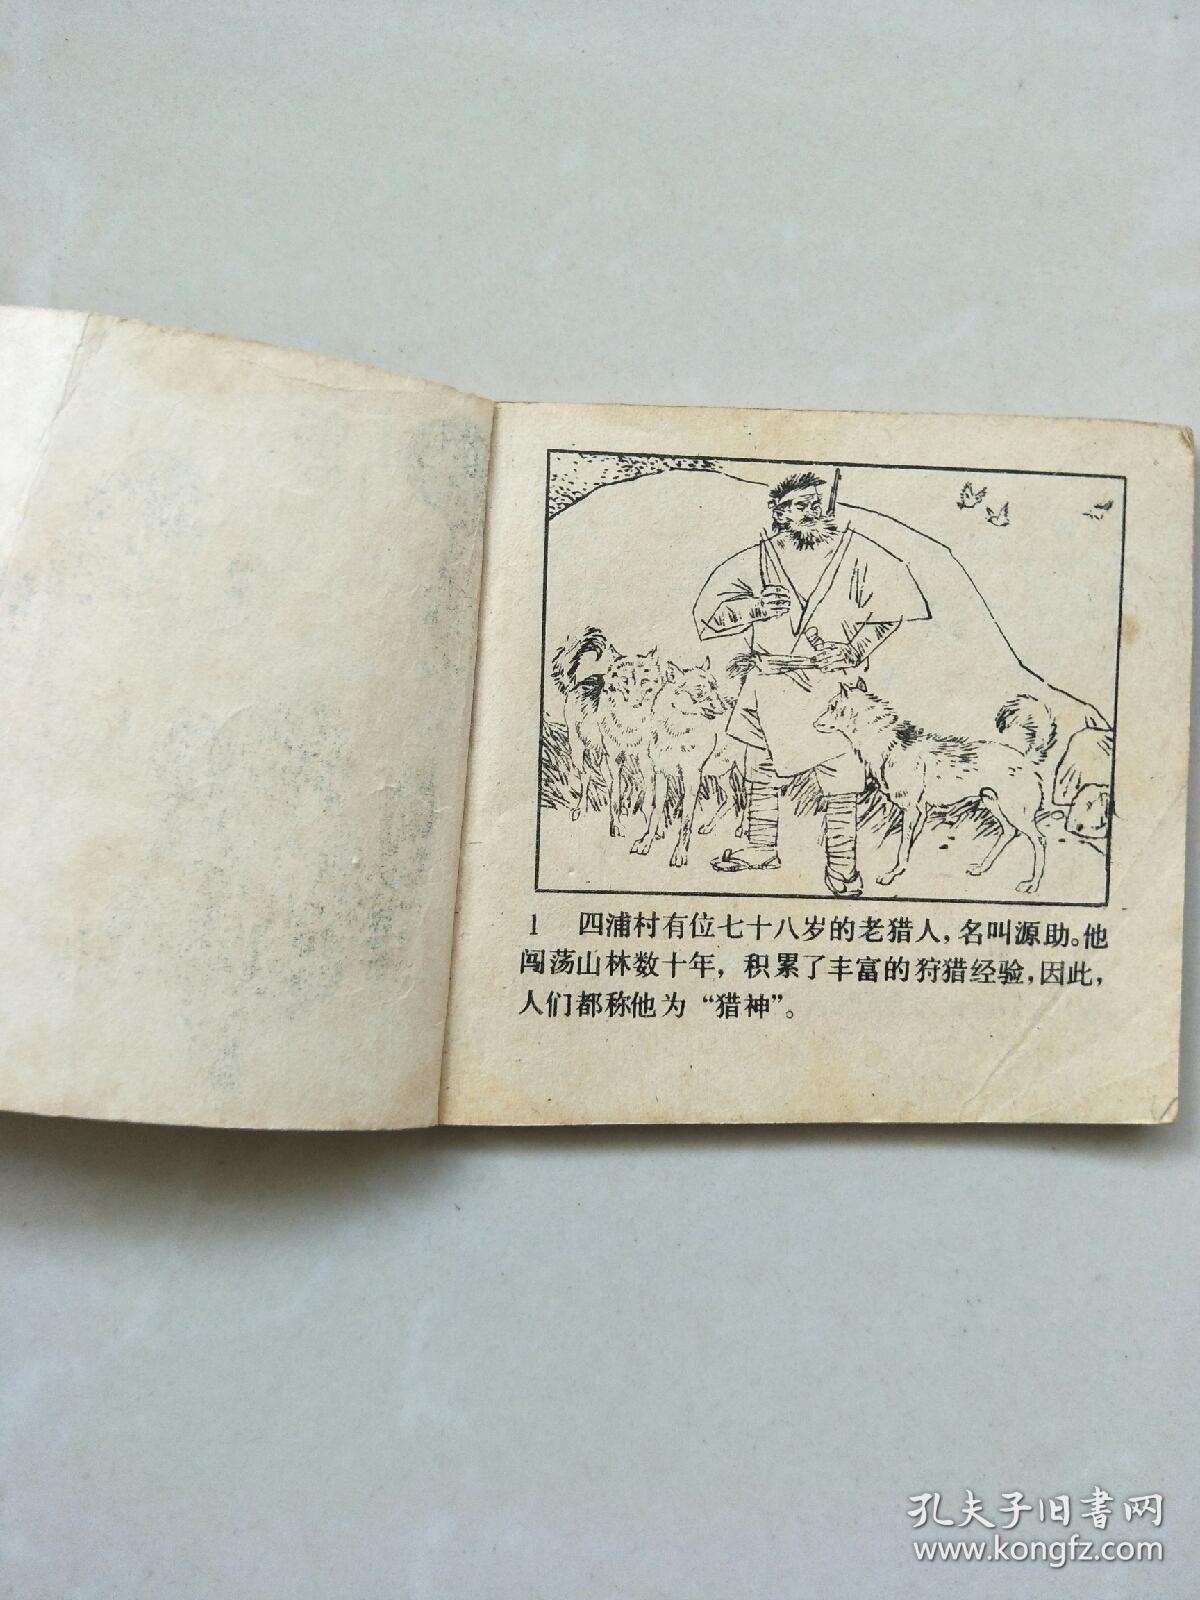 1 四浦村有位七十八岁的老猎人，名叫源助。他
闯荡山林数十年，积累了丰富的狩猎经验，因此，
人们都称他为“猎神”。
孔夫子旧书网
www.kongfz.com